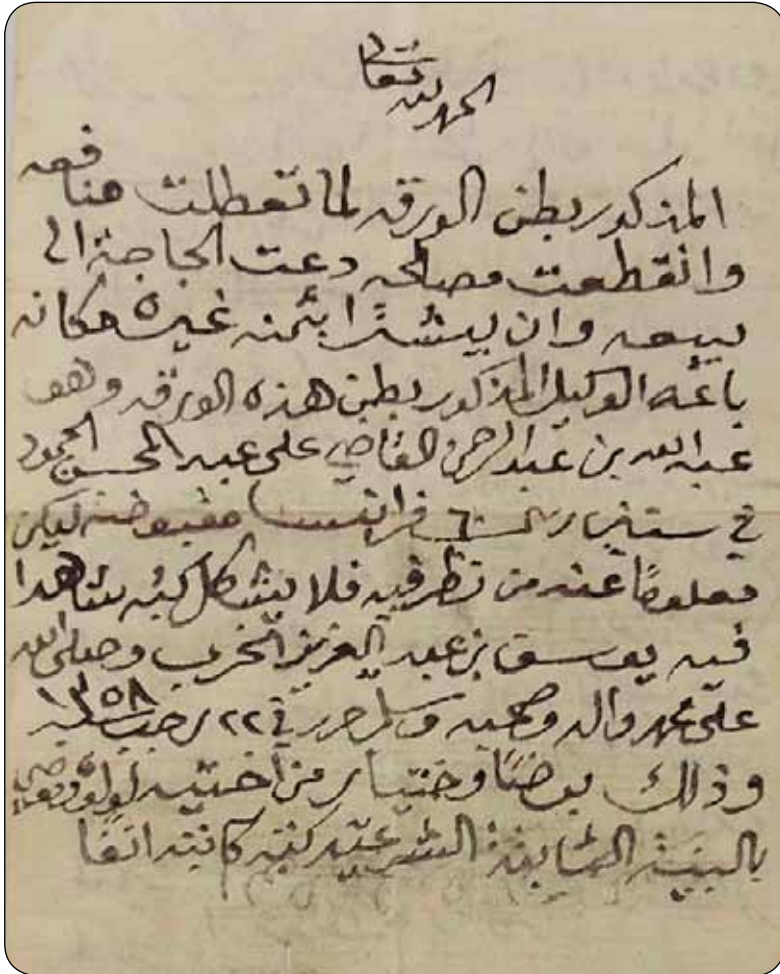 الحمد لله تعالى
المذكور بطن الورقه لما تعطلت منافعه
وانقطعت مصالحه دعت الحاجة الى
بيعه وان يشترا بثمنه غيره مكانه
باعه الوكيل المذكور بطن هذه الورقه وهو
عبد الله بن عبد الرحمن القاضي على عبد المحسن الحمود
في ستين ريال فرانسا مقبوضه ليكن
معلومًا عند من نظر فيه فلا يشكل كتبه شاهدا
فيه يوسف بن عبد العزيز الخرب وصلى الله
على محمد واله وصحبه وسلم حرر في ٢٢ رجب سنه ١٣٥٨
وذلك برضًا وختيار من اختيه لولوه وقوت
بالبينة الشرعيه كتبه كاتبه انفًا